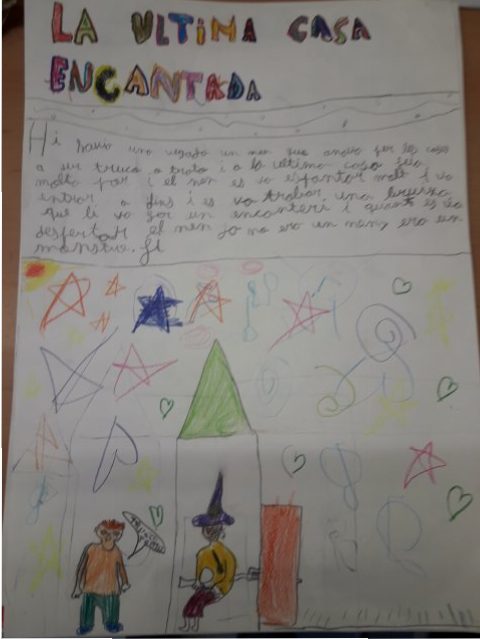 LA ULTIMA CASA
ENCANTADA
Hi havia una vegada un nen que anava per les cases
a ser truco o trato i a la ultima casa feia
molta por i el nen es va espantar molt i va
entrar a dins i es va trobar una bruixa
que li va fer un encanteri i quant es va
despertar el nen ja no era un nen, era un
monstre. fi